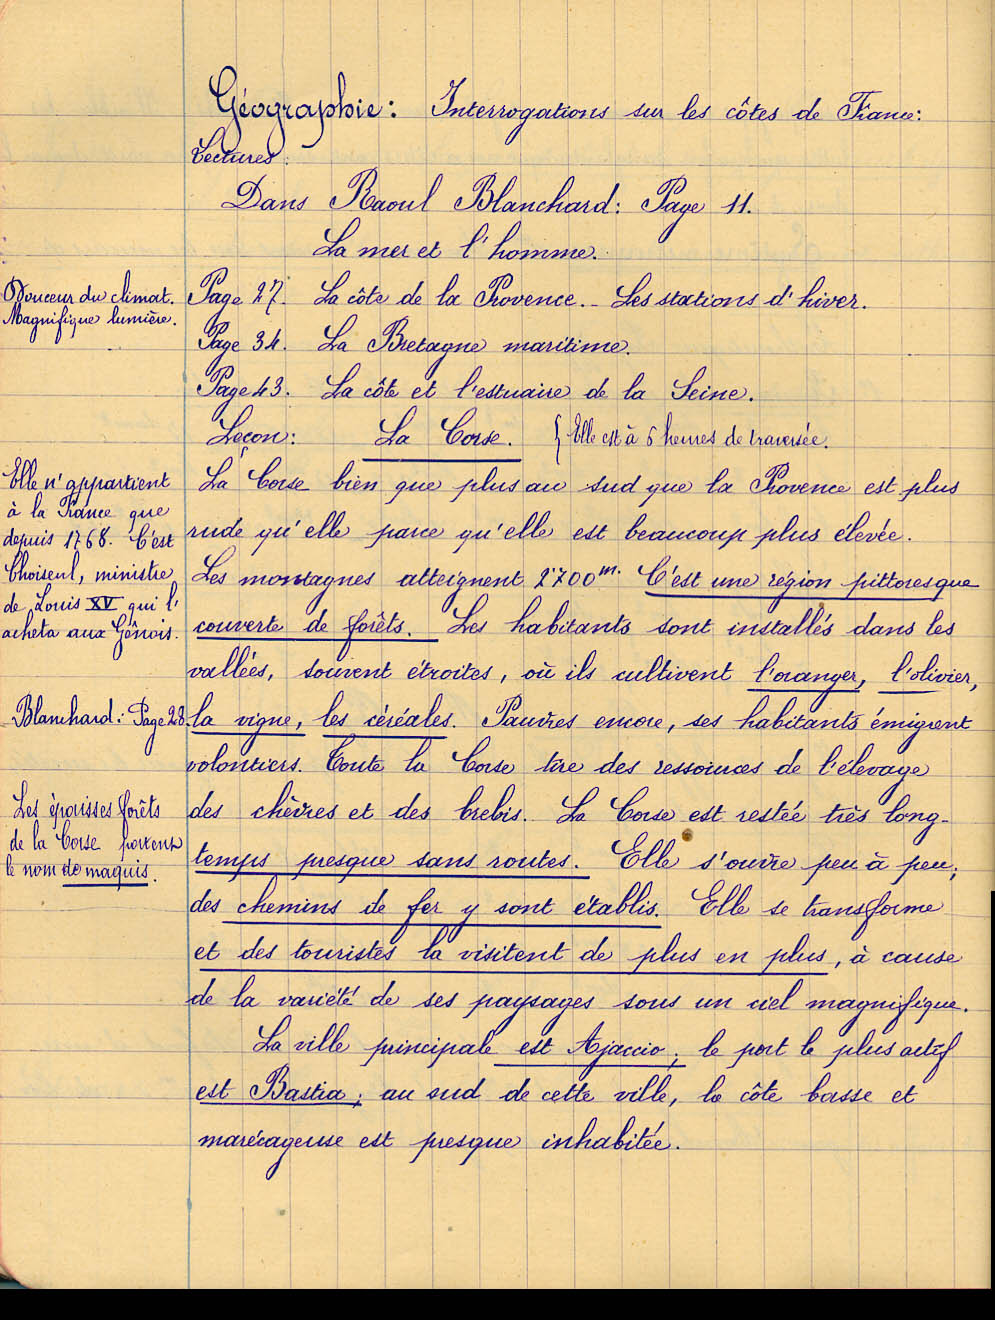 Géographie: Interrogations sur les côtes de France:
Lectures:
Dans Raoul Blanchard: Page 11.
La mer et l'homme.
Douceur du climat.
Magnifique lumière.
Page 27. La côte de la Provence. Les stations d'hiver.
Page 34. La Bretagne maritime.
Page 43. La côte et l'estuaire de la Seine.
Leçon: La Corse. { Elle est à 6 heures de traversée.
Elle n'appartient
à la France que
depuis 1768. C'est
Choiseul, ministre
de Louis XV qui l'
acheta aux Gênois.
La Corse bien que plus au sud que la Provence est plus
rude qu'elle parce qu'elle est beaucoup plus élevée.
Les montagnes atteignent 2700m. C'est une région pittoresque
couverte de forêts. Les habitants sont installés dans les
vallées, souvent étroites, où ils cultivent l'oranger, l'olivier,
Blanchard: Page 28.
la vigne, les céréales. Pauvres encore, ses habitants émigrent
volontiers. Toute la Corse tire des ressources de l'élevage
des chèvres et des brebis. La Corse est restée très long-
Les épaisses forêts
de la Corse portent
le nom de maquis.
temps presque sans routes. Elle s'ouvre peu à peu;
des chemins de fer y sont établis. Elle se transforme
et des touristes la visitent de plus en plus, à cause
de la variété de ses paysages sous un ciel magnifique.
La ville principale est Ajaccio; le port le plus actif
est Bastia; au sud de cette ville, la côte basse et
marécageuse est presque inhabitée.